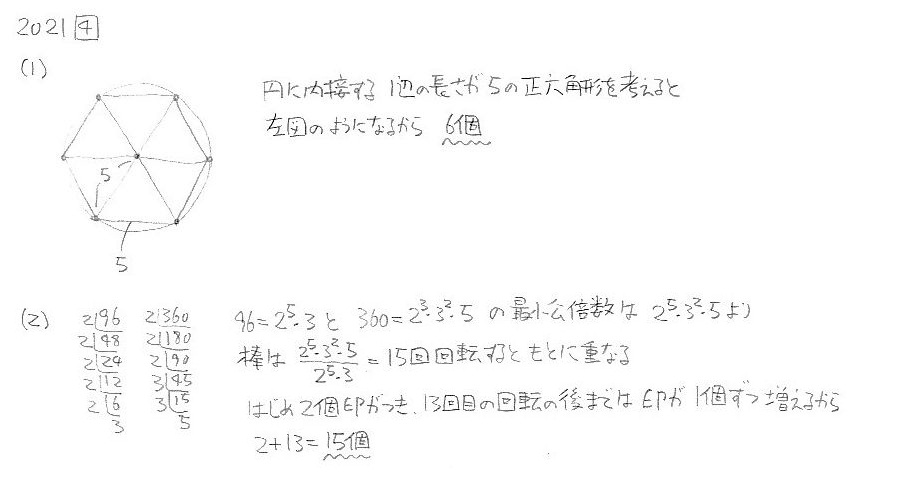 2021 4
(1)
円に内接する 1辺の長さが 5の正六角形を考えると
左図のようになるから 6個
5
5
(2)
2|96
2|48
2|24
2|12
2|6
3
2|360
2|180
2|90
3|45
3|15
5
96=2⁵·3 と 360=2³·3²·5 の 最小公倍数は 2⁵·3²·5より
棒は 2⁵·3²·5/2⁵·3 = 15回回転すると もとに重なる
はじめ2個印がつき、13回目の回転の後までは 印が 1個ずつ増えるから
2+13=15個